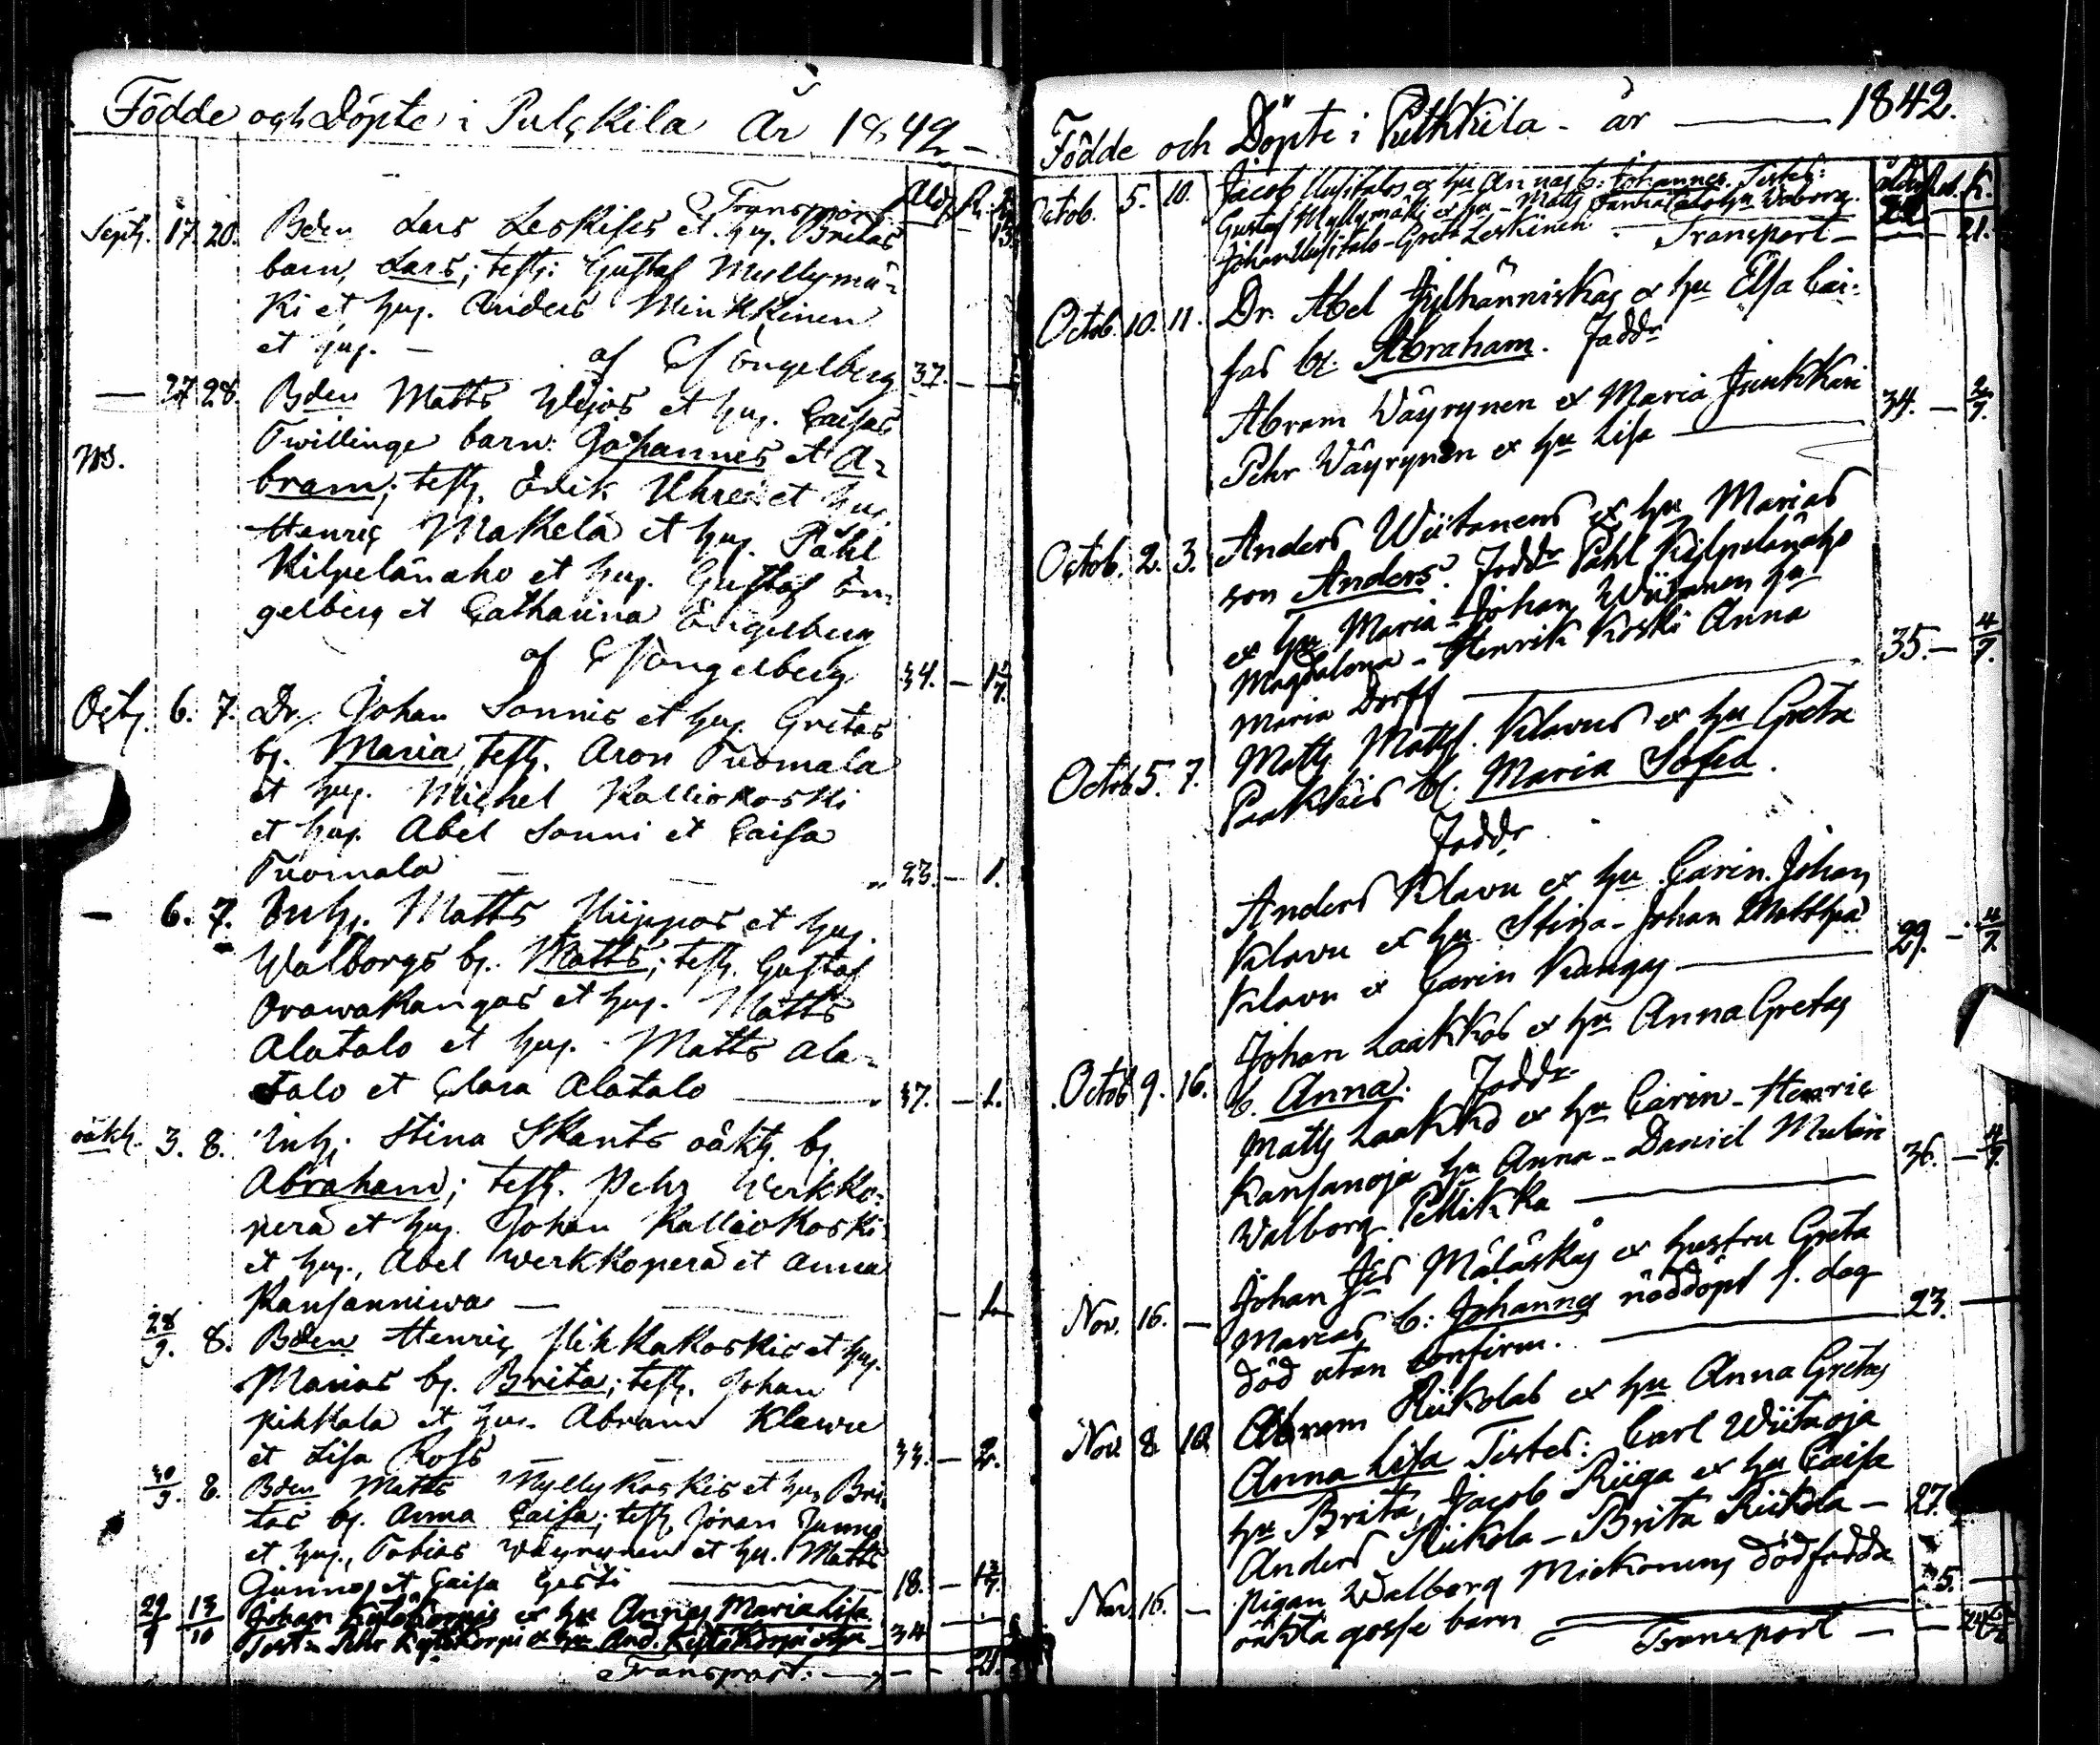 Födde och Döpte i Pulkkila År 1842
Transport Åld. R. K.
Sept. 17. 20. Bden Lars Leskises et hu. Britas
barn, Lars; test: Gustaf Myllymä-
ki et hu. Anders Minkkinen
et hu. — af C Engelberg 37. —
— 27 28. Bden Matts et hu. Caisas
Twillinge barn: Johannes et A-
bram; test. Erik Uhrei et hu.
Henric Makelä et hu. Påhl
Kilpelänaho et hu. Gustaf En-
gelberg et Catharina Engelberg
af C Engelberg 34. —
Oct. 6. 7. Dr. Johan Sonnis et hu. Gretas
b. Maria, test. Aron Tuomala
et hu. Michel Kalliokoski
et hu. Abel Sonni et Caisa
Tuomala — 23. — 1.
— 6. 7. Inh. Matts et hu.
Walborgs b. Matts; test. Gustaf
Orawakangas et hu. Matts
Alatalo et hu. Matts Ala-
talo et Clara Alatalo — 37. — 1.
oäkt. 3. 8. Inh. Stina Skants oäkt. b.
Abraham; test. Pehr Werkko-
perä et hu. Johan Kalliokoski
et hu., Abel Werkkoperä et Anna
Kansanniwa — — 1.
28/9. 8. Bden Henric et hu.
Marias b. Brita; test. Johan
Pihkala et hu. Abram Klawu
et Lisa Rofs — 33. — 2.
30/9. 8. Bden Matts Myllykoskis et hu. Bri-
tas b. Anna Caisa; test. Johan
et hu., Tobias Wäyrynen et hu. Matts
et Caisa 18. —
29/9 13/10 Johan Kylökorpis et hu Annas Maria Lisa
Test. Pehr Kylökorpi et hu And. Kylökorpi 34
Transport. — 21.
Födde och Döpte i Pulkkila - år — 1842.
Octob. 5. 10. Jacob Uusitalos et hu Annas b: Johannes. Testes: Ålder Rub. K.
Gustaf Myllymäki et hu - Matts
Johan Uusitalo - Greta Leskinen — Transport — 21.
Octob. 10. 11. Dr. Abel Jylhänniskas et hu Elsa Cai-
sas b: Abraham. Faddr
Abram Väyrynen et Maria Junkkari
Pehr Väyrynen et hu Lisa — 34. —
Octob. 2. 3. Anders Wiitanens et hu Marias
son Anders. Faddr Påhl Kilpelänaho
et hu Maria - Johan Wiitanen hu
Magdalena - Henrik Koski Anna
Maria Dorff — 35. — 4/7.
Octob 5. 7. Matts Matts. Klavus et hu Greta
b. Maria Sofia.
Faddr
Anders Klavu et hu Carin. Johan
Klavu et hu Stina - Johan
Klavu et Carin Kangas — 29. — 4/7.
Octob 9. 16. Johan Laakkos et hu Anna Gretas
b. Anna. Faddr
Matts Laakko et hu Carin - Henric
Kansanoja hu Anna - Daniel
Walborg Pellikka — 36. — 4/7.
Nov. 16. — Johan Mäläskäs et hustru Greta
Marias b: Johannes nöddöpt s. dag
död utan confirm. — 23. —
Nov. 8. 10 Abram Riikolas et hu Anna Gretas
Anna Lisa Testes: Carl Wiitaoja
hu Brita, Jacob Riiga et hu Caisa
Anders Riikola - Brita Riikola — 27.
Nov. 16. — Pigan Walborg Mickonens dödfödda
oäkta gosse barn — 25. —
Transport —